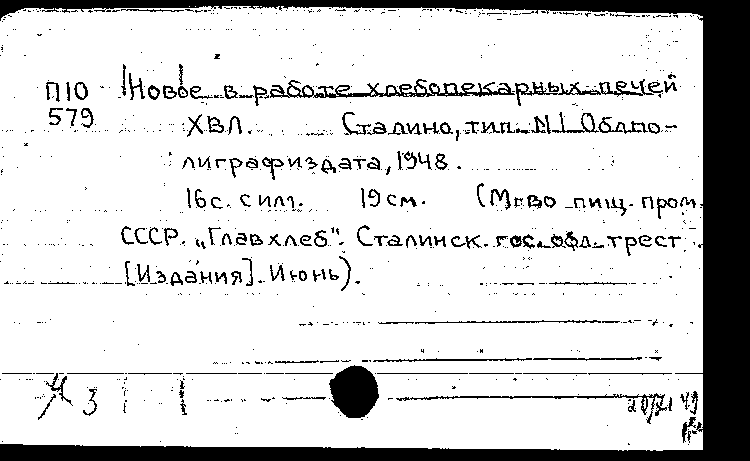 П10 Новое в работе хлебопекарных печей
579 ХВЛ. Сталино, тип. №1 Облпо-
лиграфиздата, 1948.
16 с. с илл. 19 см. (М-во пищ. пром.
СССР. „Главхлеб". Сталинск. гос. обл. трест.
[Издания]. Июнь).
3
49